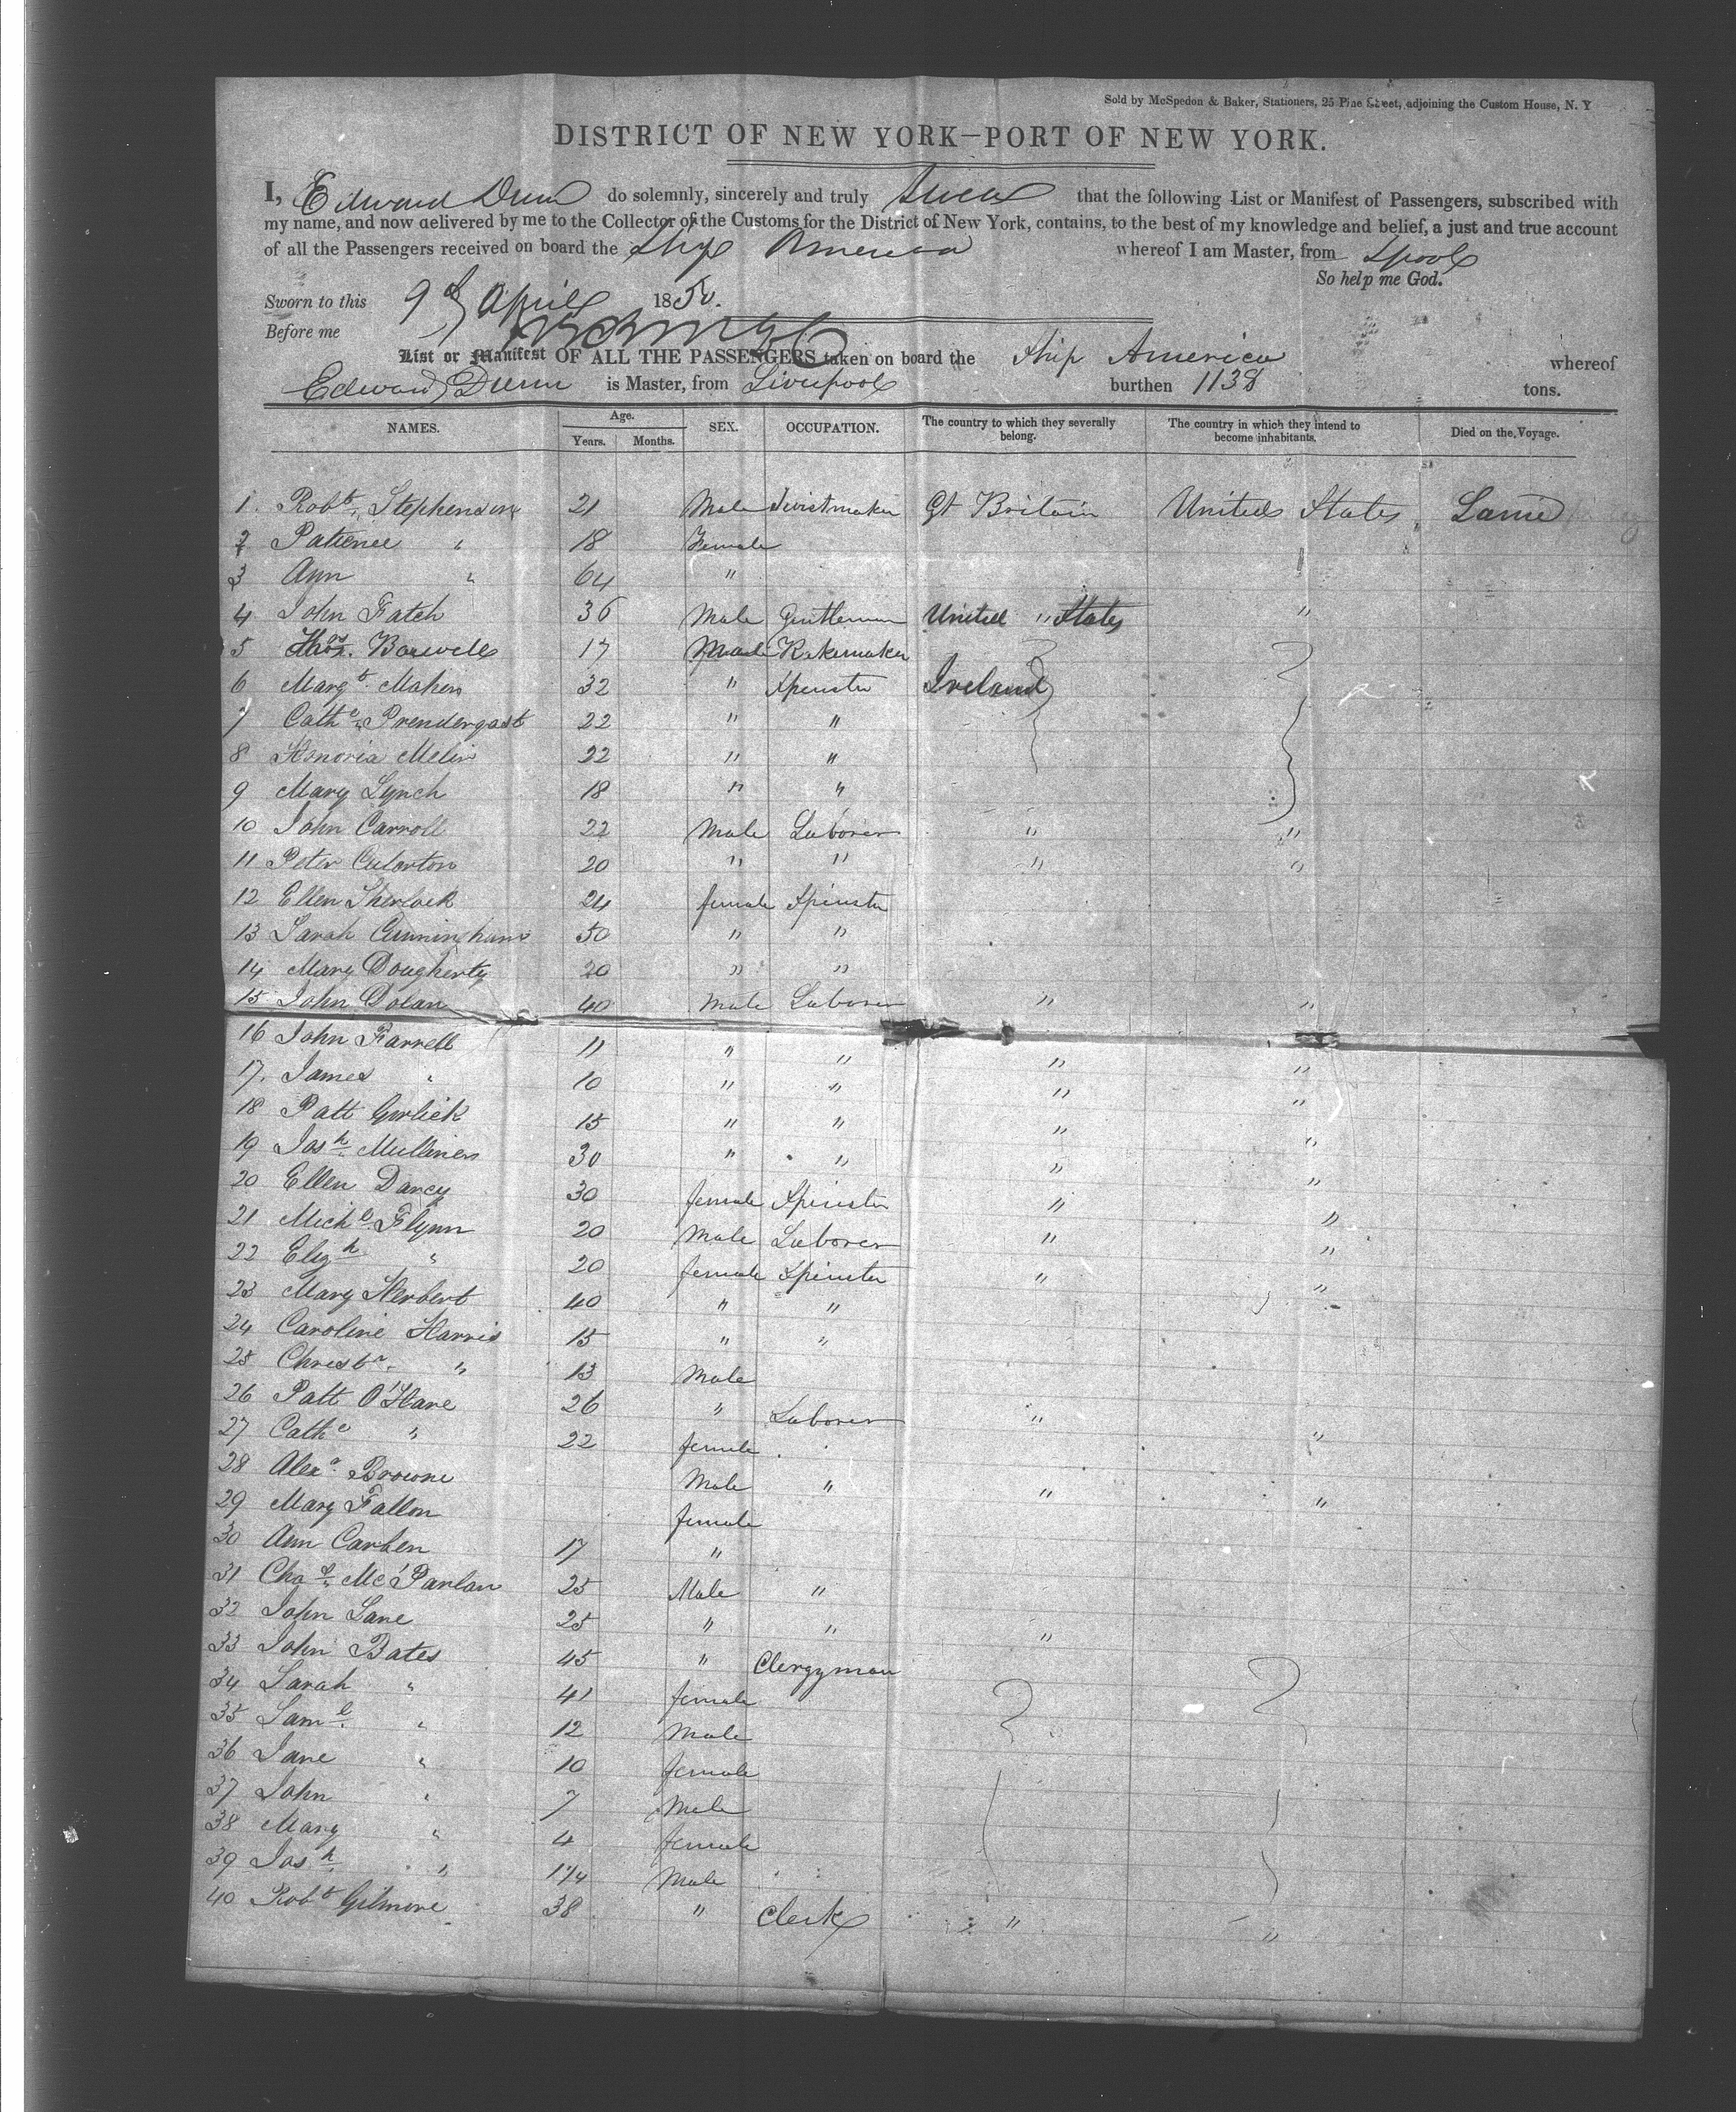 Sold by McSpedon & Baker, Stationers, 25 Pine Street, adjoining the Custom House, N. Y
DISTRICT OF NEW YORK—PORT OF NEW YORK.
I, Edward Dunn do solemnly, sincerely and truly swear that the following List or Manifest of Passengers, subscribed with
my name, and now delivered by me to the Collector of the Customs for the District of New York, contains, to the best of my knowledge and belief, a just and true account
of all the Passengers received on board the Ship America whereof I am Master, from Lpool
So help me God.
Sworn to this 9 of April 1850.
Before me
List or Manifest OF ALL THE PASSENGERS taken on board the Ship America whereof
Edward Dunn is Master, from Liverpool burthen 1138 tons.
NAMES. Age. Years. Months. SEX. OCCUPATION. The country to which they severally belong. The country in which they intend to become inhabitants. Died on the Voyage.
1. Robt. Stephenson 21 Male Twistmaker Gt Britain United States
2 Patience " 18 Female
3 Ann " 64 "
4 John Fatch 36 Male Gentleman United " States "
5 Thos. Boswell 17 Male
6 Margt. Maken 32 " Spinster Ireland
7 Cathe. Prendergast 22 " "
8 Honoria Melin 22 " "
9 Mary Lynch 18 " "
10 John Carroll 22 Male Laborer " "
11 Peter Cularton 20 " " " "
12 Ellen Sherlock 24 female Spinster
13 Sarah Cunningham 50 " "
14 Mary Dougherty 20 " "
15 John Dolan 40 Male Laborer " "
16 John Farrell 11 " " " "
17. James " 10 " " " "
18 Patt Gorlick 15 " " " "
19 Josh. Mulliner 30 " " " "
20 Ellen Darcy 30 female Spinster " "
21 Michl. Flynn 20 Male Laborer " "
22 Elizh " 20 female Spinster " "
23 Mary Herbert 40 " "
24 Caroline Harris 15 " "
25 Christr. " 13 Male
26 Patt O'Hare 26 " Laborer " "
27 Cathe " 22 female
28 Alexr. Browne Male " " "
29 Mary Fallon female
30 Ann Carben 17 "
31 Chas. McParlan 25 Male "
32 John Lane 25 " " "
33 John Bates 45 " Clergyman
34 Sarah " 41 female
35 Saml. " 12 Male
36 Jane " 10 female
37 John " 7 Male
38 Mary " 4 female
39 Josh. " 1 1/4 Male
40 Robt Gilmore 38 " Clerk " "